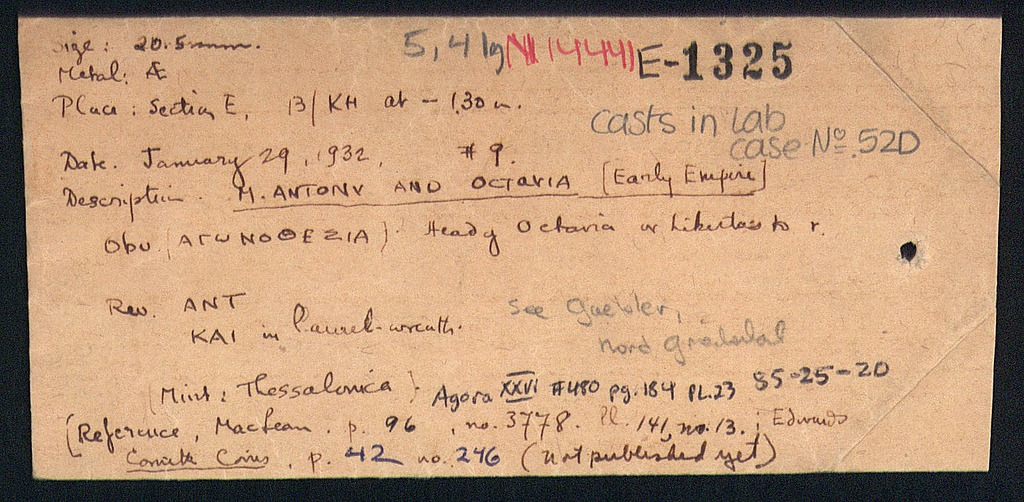 Size: 20.5 mm. 5,41g N 14441 E-1325
Metal: Æ
Place: Section E, 13/KH at - 1.30 m.
casts in lab
case No. 52D
Date. January 29, 1932, # 9.
Description. M. ANTONY AND OCTAVIA [Early Empire]
Obv. [ΑΓΩΝΟΘΕΣΙΑ] Head of Octavia or Libertas to r.
Rev. ANT
KAI in laurel-wreath.
see Gaebler,
Nord
[Mint: Thessalonica] Agora XXVI #480 pg. 184 PL.23 85-25-20
[Reference, MacLean. p. 96, no. 3778. Pl. 141, no. 13. ; Edwards
Corinth Coins, p. 42 no. 246 (not published yet)